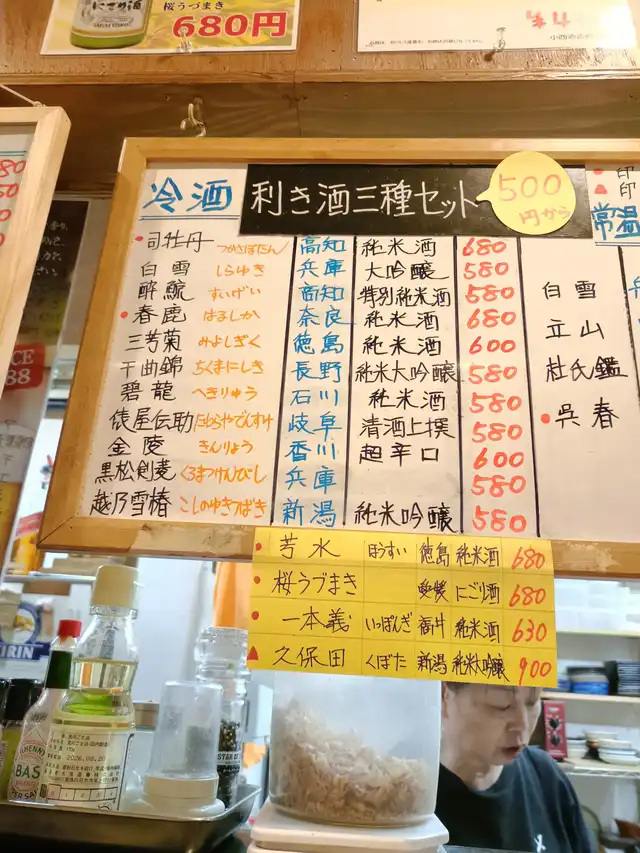 にごり酒
桜うづまき
680円
冷酒
利き酒三種セット
500
円から
常温
司牡丹 つかさぼたん 高知 純米酒 680
白雪 しらゆき 兵庫 大吟醸 580
酔鯨 すいげい 高知 特別純米酒 580
春鹿 はるしか 奈良 純米酒 680
三芳菊 みよしぎく 徳島 純米酒 600
千曲錦 ちくまにしき 長野 純米大吟醸 580
碧龍 へきりゅう 石川 純米酒 580
俵屋伝助 たわらやでんすけ 岐阜 清酒上撰 580
金陵 きんりょう 香川 超辛口 600
黒松剣菱 くろまつけんびし 兵庫 580
越乃雪椿 こしのゆきつばき 新潟 純米吟醸 580
白雪
立山
杜氏鑑
呉春
芳水 ほうすい 徳島 純米酒 680
桜うづまき 愛媛 にごり酒 680
一本義 いっぽんぎ 福井 純米酒 630
久保田 くぼた 新潟 純米吟醸 900
KIRIN
2026.06.20